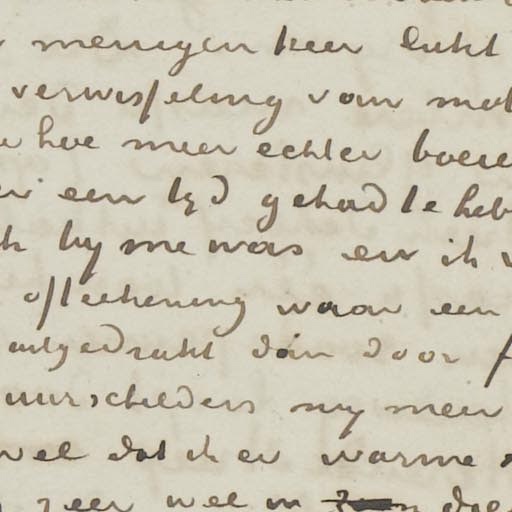 menigen keer lukt
verwisseling van mod
hoe meer echter boere
een tyd gehad te heb
by me was en ik
of teekening waar een
uitgedrukt dan door
uurschilders my meer
wel dat ik er warme
zeer wel in